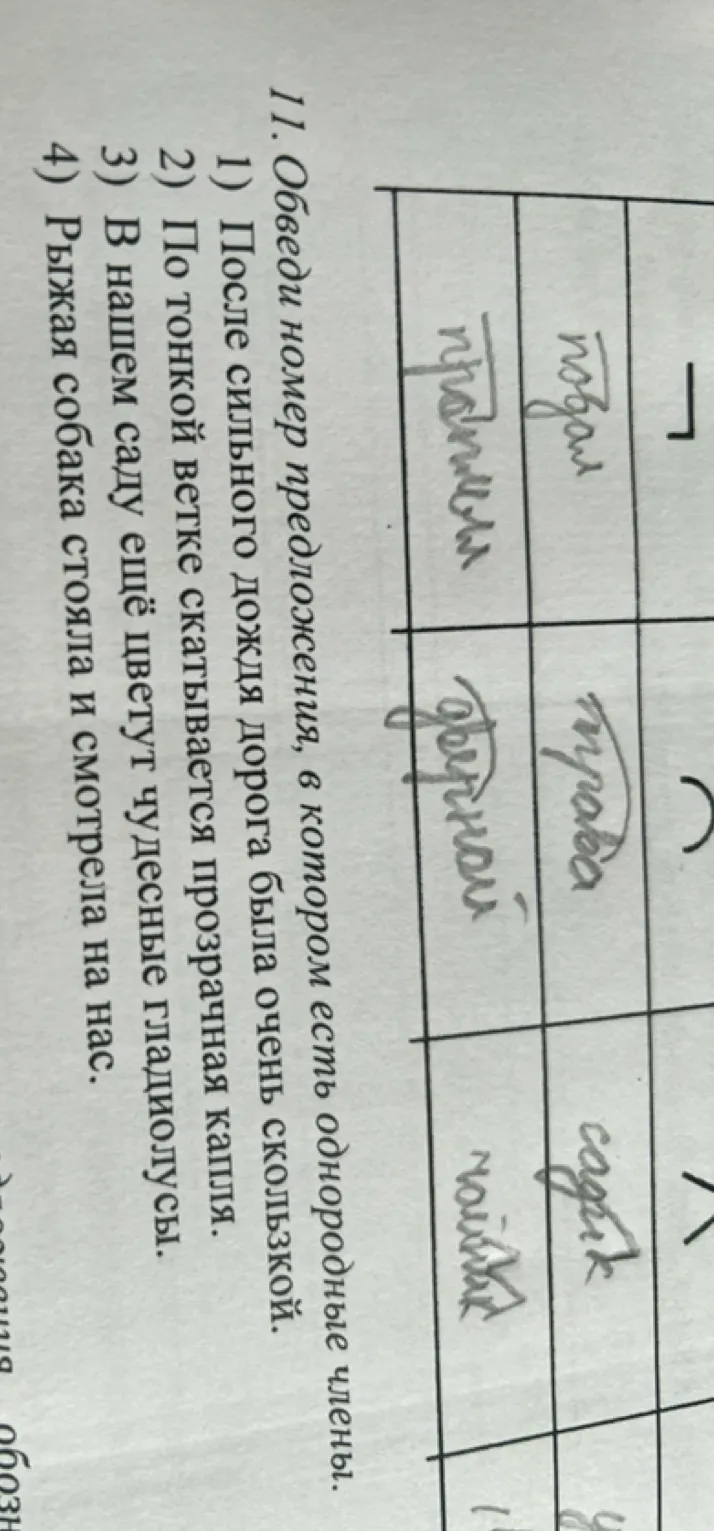 подал трава садик
проплыл дверной чайник
11. Обведи номер предложения, в котором есть однородные члены.
1) После сильного дождя дорога была очень скользкой.
2) По тонкой ветке скатывается прозрачная капля.
3) В нашем саду ещё цветут чудесные гладиолусы.
4) Рыжая собака стояла и смотрела на нас.